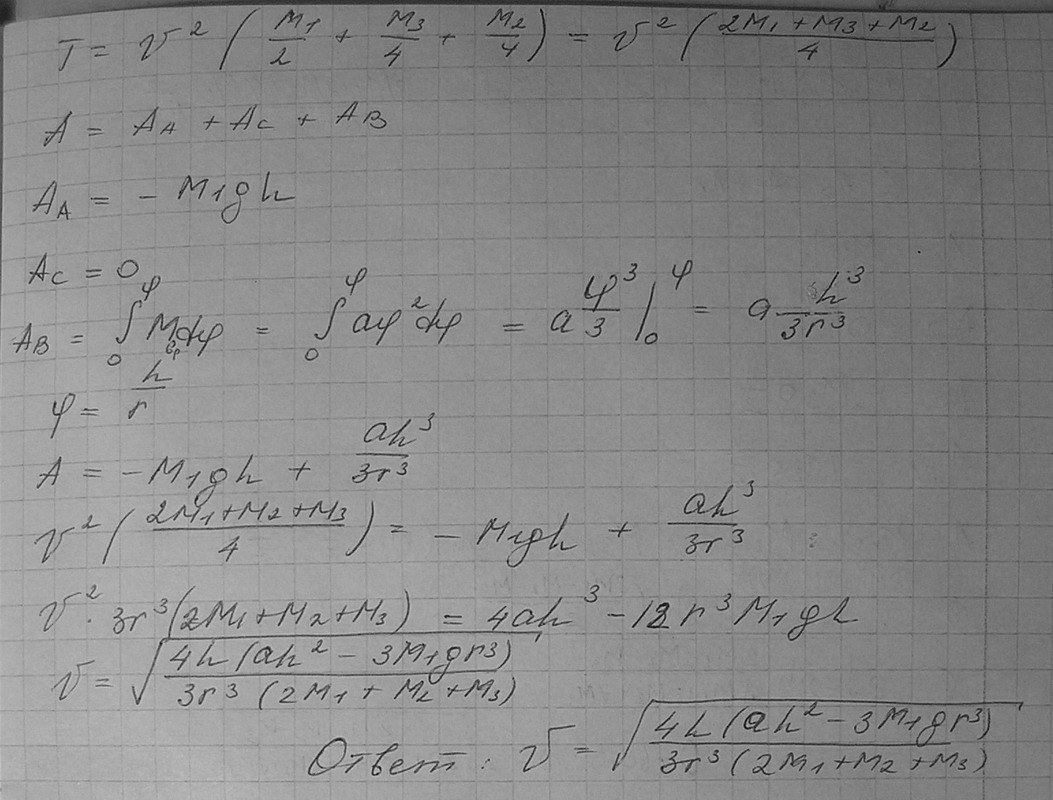 T = v² ( M₁/2 + M₃/4 + M₂/4 ) = v² ( (2M₁ + M₃ + M₂)/4 )
A = A_A + A_C + A_B
A_A = - M₁gh
A_C = 0
A_B = ∫₀^φ M_вр dφ = ∫₀^φ aφ² dφ = a φ³/3 |₀^φ = a h³/3r³
φ = h/r
A = - M₁gh + ah³/3r³
v² ( (2M₁ + M₂ + M₃)/4 ) = - M₁gh + ah³/3r³
v² · 3r³(2M₁ + M₂ + M₃) = 4ah³ - 12r³M₁gh
v = √( 4h(ah² - 3M₁gr³) / 3r³(2M₁ + M₂ + M₃) )
Ответ: v = √( 4h(ah² - 3M₁gr³) / 3r³(2M₁ + M₂ + M₃) )